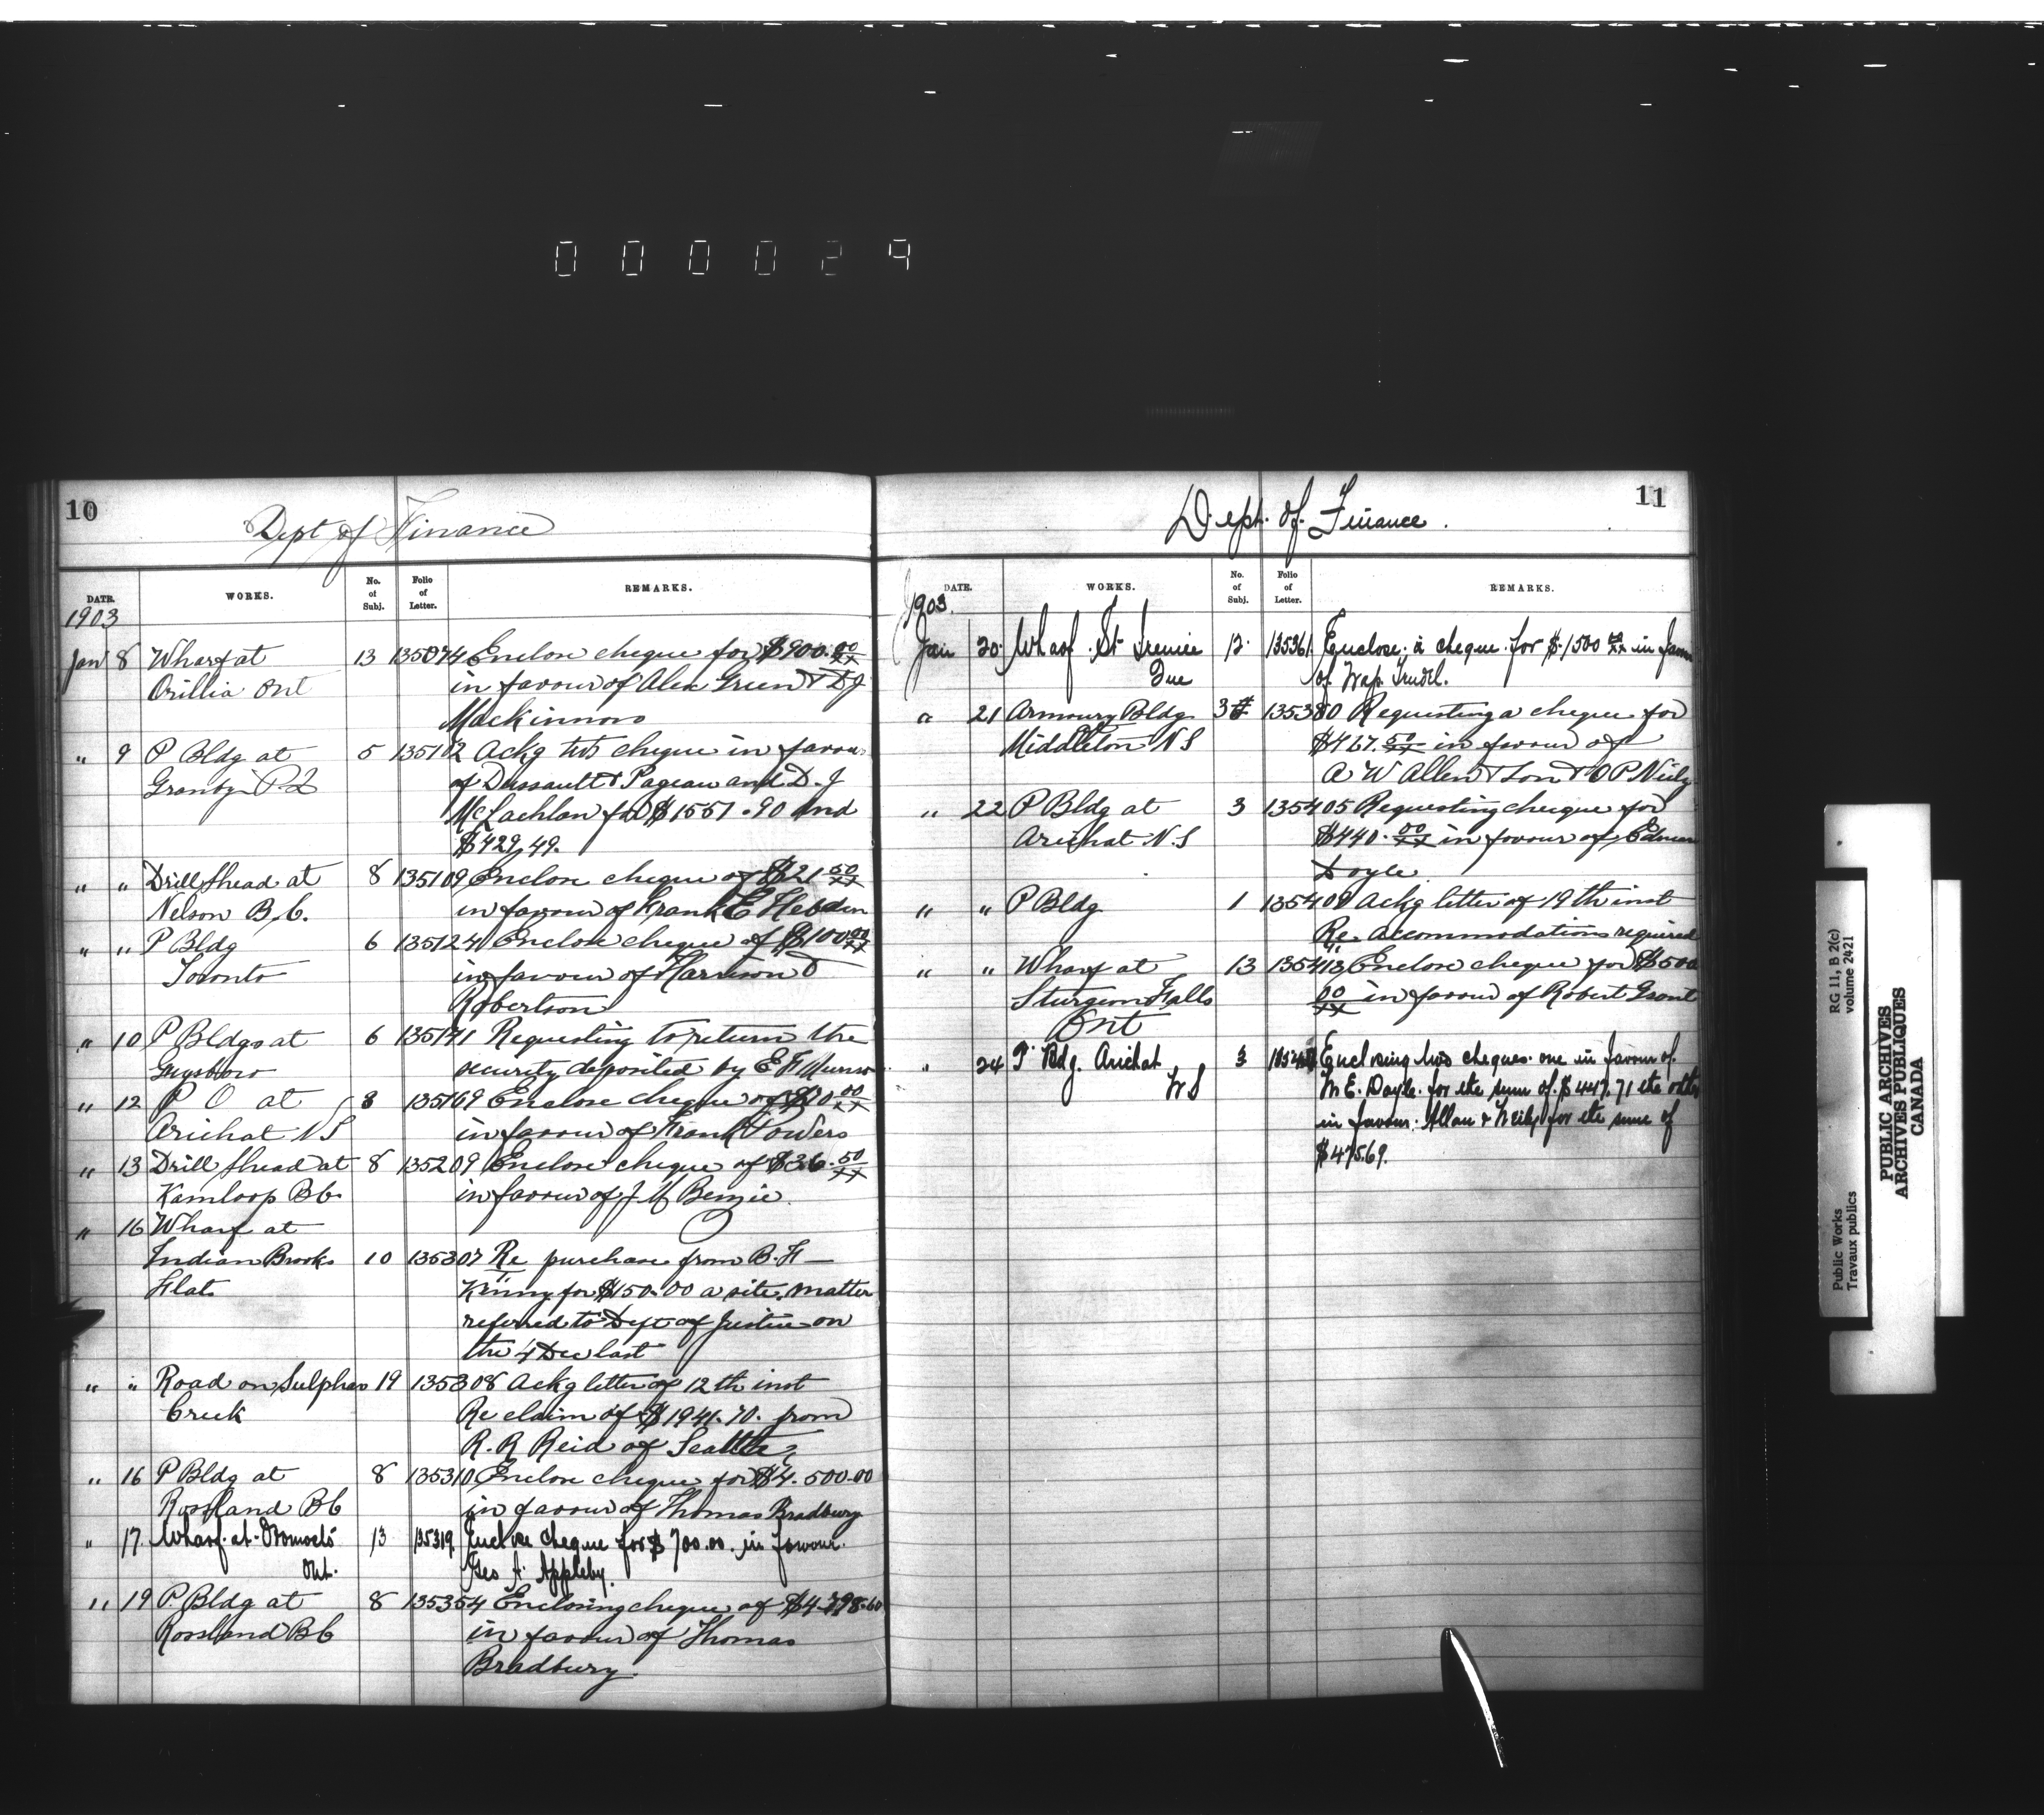 000029
10
Dept of Finance
DATE. WORKS. No. of Subj. Folio of Letter. REMARKS.
1903
Jan 8 Wharf at 13 135074 Enclose cheque for $900.00/xx
Orillia Ont in favour of Alex Green & D J
Mackinnon
" 9 P Bldg at 5 135102 Ackg two cheque in favour
Granby P.Q of Dussault & Pageau and D. J
McLachlan for $1551.90 and
$429,49.
" " Drill Shead at 8 135109 Enclose cheque of $21 50/xx
Nelson B.C. in favour of Frank E Hebden
" " P Bldg 6 135124 Enclose cheque of $100 00/xx
Toronto in favour of Harrison &
Robertson
" 10 P Bldgs at 6 135141 Requesting to return the
Guysboro security deposited by E F Munro
" 12 P O at 8 135169 Enclose cheque of $10 00/xx
Arichat N S in favour of Frank Powers
" 13 Drill Shead at 8 135209 Enclose cheque of $36.50/xx
Kamloop B C in favour of J M
" 16 Wharf at
Indian Brooks 10 135307 Re purchase from B. F
Flat Kinny for $150.00 a site. matter
referred to Dept of Justice on
the 4 Dec last
" " Road on Sulpher 19 135308 Ackg letter of 12th inst
Creek Re claim of $1941.70. from
R. R Reid of Seattle
" 16 P Bldg at 8 135310 Enclose cheque for $4.500.00
Rossland B C in favour of Thomas Bradbury
" 17. Wharf at 13 135319 Enclose cheque for $700.00. in favour.
Ont. Geo A. Appleby.
" 19 P. Bldg at 8 135354 Enclosing cheque of $4.798.60
Rossland B C in favour of Thomas
Bradbury.
11
Dept. of Finance.
DATE. WORKS. No. of Subj. Folio of Letter. REMARKS.
1903.
Jan 20. Wharf. St Irenée 12. 135361. Enclose. a cheque. for $.1500 00/xx in favour
Que of Trudel.
" 21 Armoury Bldg 3 135380 Requesting a cheque for
Middleton N S $467.50/xx in favour of
A W Allen & Son & O P Neily
" 22 P Bldg at 3 135405 Requesting cheque for
Arichat N.S $440.00/xx in favour of Edmun
Doyle
" " P Bldg 1 135409 Ackg letter of 19th inst
Re Accommodations required
" " Wharf at 13 135413 Enclose cheque for $500
Sturgeon Falls 00/xx in favour of Robert Grant
Ont
" 24 P. Bdg. Arichat 3 Enclosing two cheques. one in favour of.
N S M E. Doyle. for the sum of. $447.71 the other
in favour. Allan & Neily for the sum of
$475.69.
Public Works
Travaux publics
RG 11, B 2(c)
volume 2421
PUBLIC ARCHIVES
ARCHIVES PUBLIQUES
CANADA